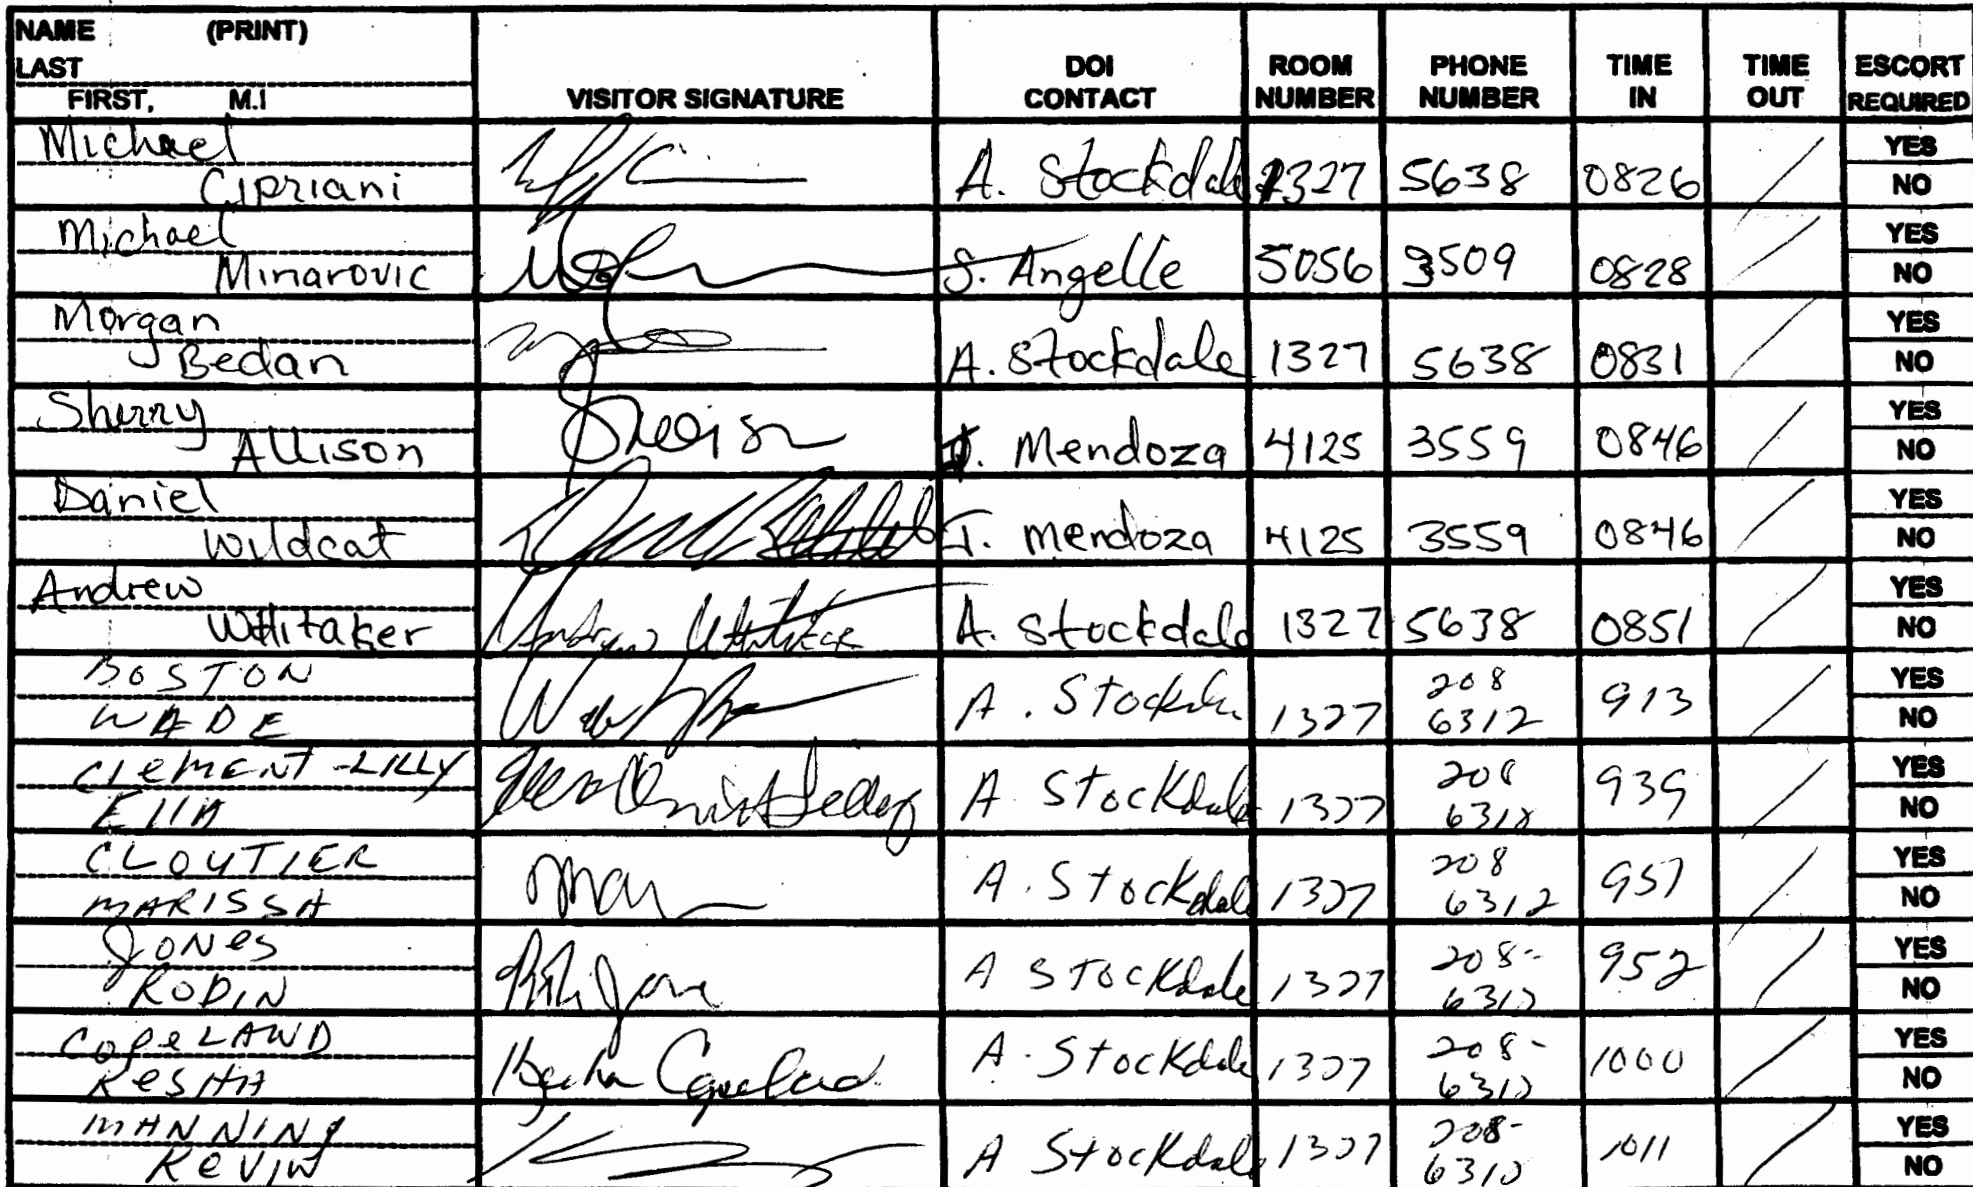 NAME (PRINT)
LAST
FIRST, M.I
VISITOR SIGNATURE
DOI
CONTACT
ROOM
NUMBER
PHONE
NUMBER
TIME
IN
TIME
OUT
ESCORT
REQUIRED
Michael
Cipriani
A. Stockdale 1327 5638 0826
YES
NO
Michael
Minarovic
S. Angelle 5056 3509 0828
YES
NO
Morgan
Bedan
A. Stockdale 1327 5638 0831
YES
NO
Sherry
Allison
J. Mendoza 4125 3559 0846
YES
NO
Daniel
Wildcat
J. Mendoza 4125 3559 0846
YES
NO
Andrew
Whitaker
Andrew Whitaker A. Stockdale 1327 5638 0851
YES
NO
BOSTON
WADE
A. Stockdale 1327 208
6312
913
YES
NO
CLEMENT-LILLY
ElIA
A Stockdale 1327 208
6312
939
YES
NO
CLOUTIER
MARISSA
A. Stockdale 1327 208
6312
957
YES
NO
JONES
ROBIN
A Stockdale 1327 208-
6312
952
YES
NO
COPELAND
KESHA
Kesha Copeland A. Stockdale 1327 208-
6312
1000
YES
NO
MANNING
KEVIN
A Stockdale 1327 208-
6312
1011
YES
NO